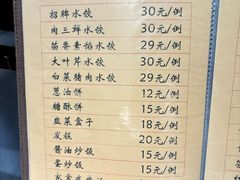 招牌水饺 30元/例
肉三鲜水饺 30元/例
茴香素馅水饺 29元/例
大叶芹水饺 30元/例
白菜猪肉水饺 29元/例
葱油饼 12元/例
糖酥饼 15元/例
韭菜盒子 18元/例
发糕 20元/例
酱油炒饭 15元/例
蛋炒饭 15元/例